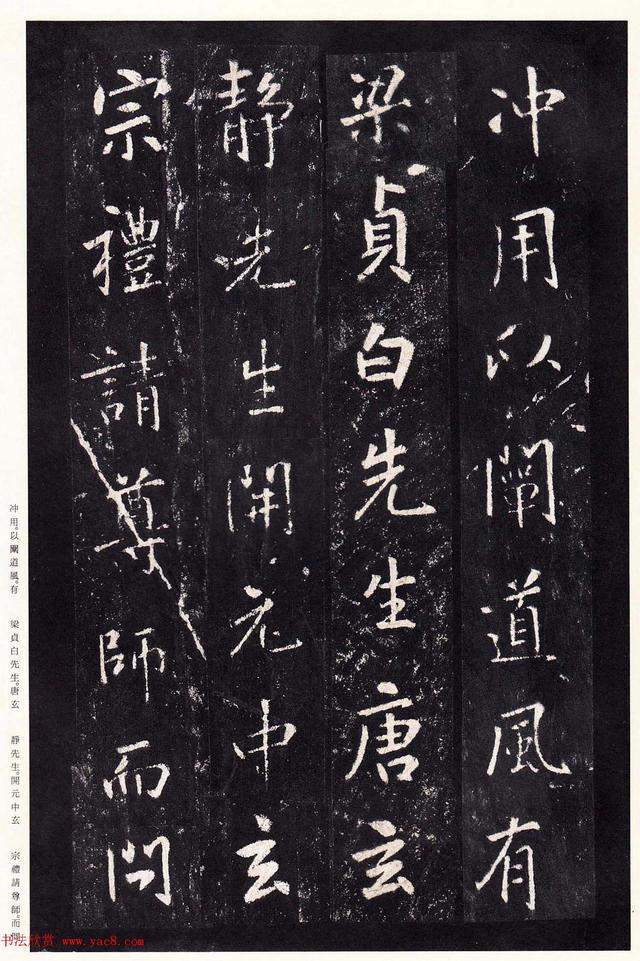 冲用以闡道風有
梁貞白先生唐玄
靜先生開元中玄
宗禮請尊師而問
冲用。以闡道風。有　梁貞白先生。唐玄　靜先生。開元中玄　宗禮請尊師。而問
书法欣赏 www.yac8.com